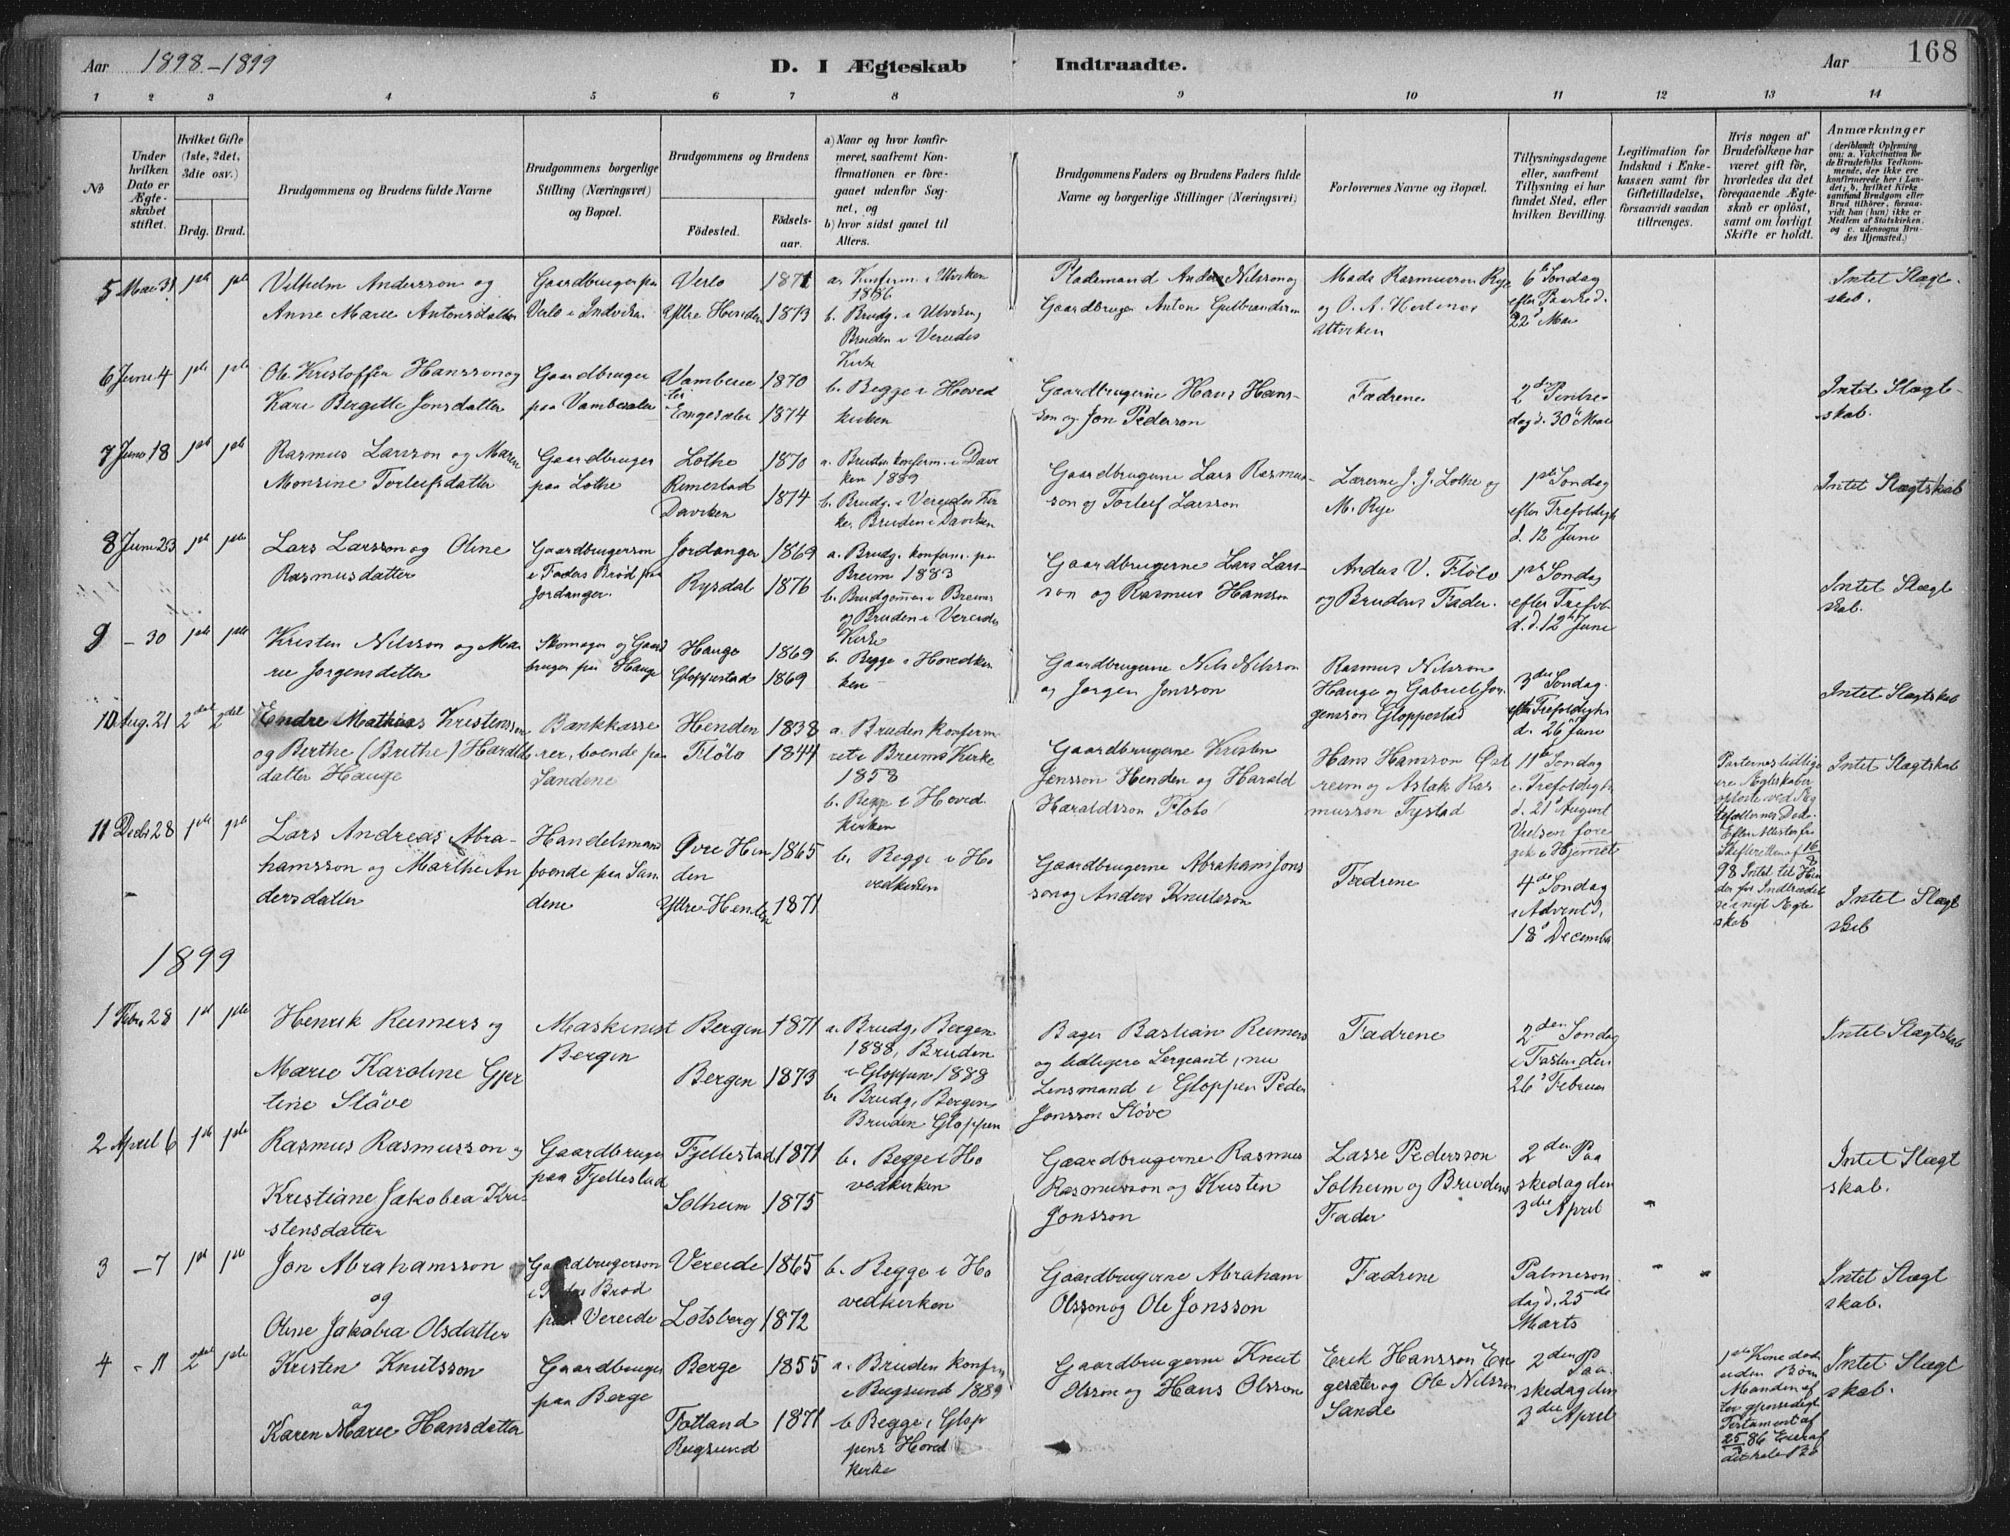 Aar 1898-1899 D. I Ægteskab Indtraadte. Aar 168
1 2 3 4 5 6 7 8 9 10 11 12 13 14
No
Under hvilken Dato er Ægteskabet stiftet.
Hvilket Gifte (1ste, 2det, 3die osv.)
Brdg. Brud.
Brudgommens og Brudens fulde Navne
Brudgommens borgerlige Stilling (Næringsvei) og Bopæl.
Brudgommens og Brudens
Födested. Födselsaar.
a) Naar og hvor konfirmeret, saafremt Konfirmationen er foregaaet udenfor Sognet, og
b) hvor sidst gaaet til Alters.
Brudgommens Faders og Brudens Faders fulde Navne og borgerlige Stillinger (Næringsvei)
Forlovernes Navne og Bopæl.
Tillysningsdagene eller, saafremt Tillysning ei har fundet Sted, efter hvilken Bevilling.
Legitimation for Indskud i Enkekassen samt for Giftetilladelse, forsaavidt saadan tiltrænges.
Hvis nogen af Brudefolkene har været gift för, hvorledes da det foregaaende Ægteskab er oplöst, samt om lovligt Skifte er holdt.
Anmærkninger (deriblandt Oplysning om: a. Vakcination for de Brudefolks Vedkommende, der ikke ere konfirmerede her i Landet; b. hvilket Kirkesamfund Brudgom eller Brud tilhörer, forsaavidt han (hun) ikke er Medlem af Statskirken, og c. udensogns Brudes Hjemsted.)
5 Mai 31 1ste 1ste
Vilhelm Andersson og
Anne Marie Antonsdatter
Gaardbruger paa
Verlo i Indviken
Verlo 1871
Ytre Henden 1873
a. Konfirm. i Utviken
1886
b. Brudg. i Utviken,
Bruden i Vereides
Kirke
Pladsmand Anders Nilsson og
Gaardbruger Anton Gulbrandsson
Mads Rasmusson Rye
og O. A. Hestenes
Utviken
6te Söndag
efter Paaske d.
22de Mai
Intet Slægt-
skab.
6 Juni 4 1ste 1ste
Ole Kristoffer Hansson og
Kari Bergitte Jonsdatter
Gaardbruger
paa Vambesæter
Vambesæ 1870
ter
Engesæter 1874
b. Begge i Hoved
kirken
Gaardbrugerne Hans Hans-
son og Jon Pederson
Fædrene
2den Pintse-
dag d. 30te Mai
Intet Slægt-
skab.
7 Juni 18 1ste 1ste
Rasmus Larsson og Maren
Monsine Torleifsdatter
Gaardbruger
paa Lothe
Lothe 1870
Rimestad
Daviken 1874
a. Bruden konfirm. i Davi
ken 1889
b. Brudg. i Vereides Kir
ke, Bruden i Daviken
Gaardbrugerne Lars Rasmus-
son og Torleif Larsson
Lærerne J. J. Lothe og
M. Rye
1ste Söndag
efter Trefoldigh
d. 12te Juni
Intet Slægtskab
8 Juni 23 1ste 1ste
Lars Larsson og Oline
Rasmusdatter
Gaardbrugerson
i Faders Bröd paa
Jordanger.
Jordanger 1869
Rysdal 1876
a. Brudg. konfirm. paa
Breim 1883
b. Brudgommen i Breims
og Bruden i Vereides
Kirke
Gaardbrugerne Lars Lars-
son og Rasmus Hansson
Anders V. Flölo
og Brudens Fader.
1ste Söndag
efter Trefol.
d. d. 12te Juni
Intet Slægt
skab.
9 - 30 1ste 1ste
Kristen Nilsson og Ma-
rie Jörgensdatter
Skomager og Gaard
bruger paa Hauge
Hauge 1869
Gloppestad 1869
b. Begge i Hovedkir
ken
Gaardbrugerne Nils Nilsson
og Jörgen Jonsson
Rasmus Nilsson
Hauge og Gabriel Jör
gensson Gloppestad
3die Söndag
efter Trefoldigh
d. 26de Juni
Intet Slægtskab
10 Aug. 21 2det 2det
Endre Mathias Kristensson
og Berthe (Brithe) Haralds
datter Hauge
Bankkasse
rer, boende paa
Sandene
Henden 1838
Flölo 1844
a. Bruden konfirm
ret i Breims Kirke
1858
b. Begge i Hoved.
kirken
Gaardbrugerne Kristen
Jensson Henden og Harald
Haraldsson Flölo
Hans Hansson Öst
reim og Aslak Ras
musson Tystad
11te Söndag
e. Trefoldigh
d. 21de August
Vielsen fore
gik i Hjemmet
Parternes tidlige
re Ægteskaber
oplöste ved Æg
tefællernes Död.
Efter Attest fra
Skifteretten af 16/8
98 Intet til Hin
der for Indtrædel
se i nyt Ægte
skab
Intet Slægtskab
11 Decbr 28 1ste 1ste
Lars Andreas Abra-
hamsson og Marthe An
dersdatter
Handelsmand
boende paa San
dene
Övre Hen 1865
den
Ytre Henden 1871
b. Begge i Ho
vedkirken
Gaardbrugerne Abraham Jons
son og Anders Knutsson
Fædrene
4de Söndag
i Advent d.
18de December
Intet Slægt
skab
1899
1 Febr. 28 1ste 1ste
Henrik Reimers og
Marie Karoline Gjer
tine Slöve
Maskinist
Bergen
Bergen 1871
Bergen 1873
a. Brudg. Bergen
1888, Bruden
i Gloppen 1888
b. Brudg. Bergen,
Bruden Gloppen
Bager Bastian Reimers
og tidligere Sergeant, nu
Lensmand i Gloppen Peder
Jonsson Slöve
Fædrene
2den Söndag
i Fasten den
26de Februar
Intet Slægtskab
2 April 6 1ste 1ste
Rasmus Rasmusson og
Kristiane Jakobea Kri-
stensdatter
Gaardbruger
paa Fjellestad
Fjellestad 1871
Solheim 1875
b. Begge i Ho
vedkirken
Gaardbrugerne Rasmus
Rasmusson og Kristen
Jonsson
Lasse Pedersson
Solheim og Brudens
Fader
2den Paa
skedag den
3die April
Intet Slægt
skab.
3 - 7 1ste 1ste
Jon Abrahamsson
og
Oline Jakobea Olsdatter
Gaardbrugerson
i Faders Bröd
paa Vereide
Vereide 1865
Lotsberg 1872
b. Begge i Ho
vedkirken
Gaardbrugerne Abraham
Olsson og Ole Jonsson
Fædrene
Palmesön
dag d. 25de
Marts
Intet Slægt
skab.
4 - 11 2det 1ste
Kristen Knutsson
og
Karen Marie Hansdatter
Gaardbruger
paa Berge
Berge 1855
Totland 1871
Rugsund
a. Bruden konfirm
i Rugsund 1889
b. Begge i Glop
pens Hoved
kirke
Gaardbrugerne Knut
Olsson og Hans Olsson
Erik Hansson En
gesæter og Ole Nilsson
Sande
2den Paa
skedag den
3die April
1ste Kone död
uden Börn
Manden ef
ter gjensidigt
Testament af
25/3 86 Eier af
det hele Bo
Intet Slægt
skab.